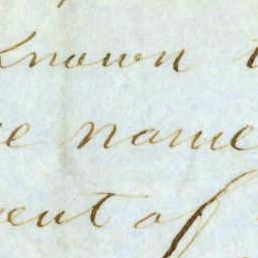 known t
e name
ent of